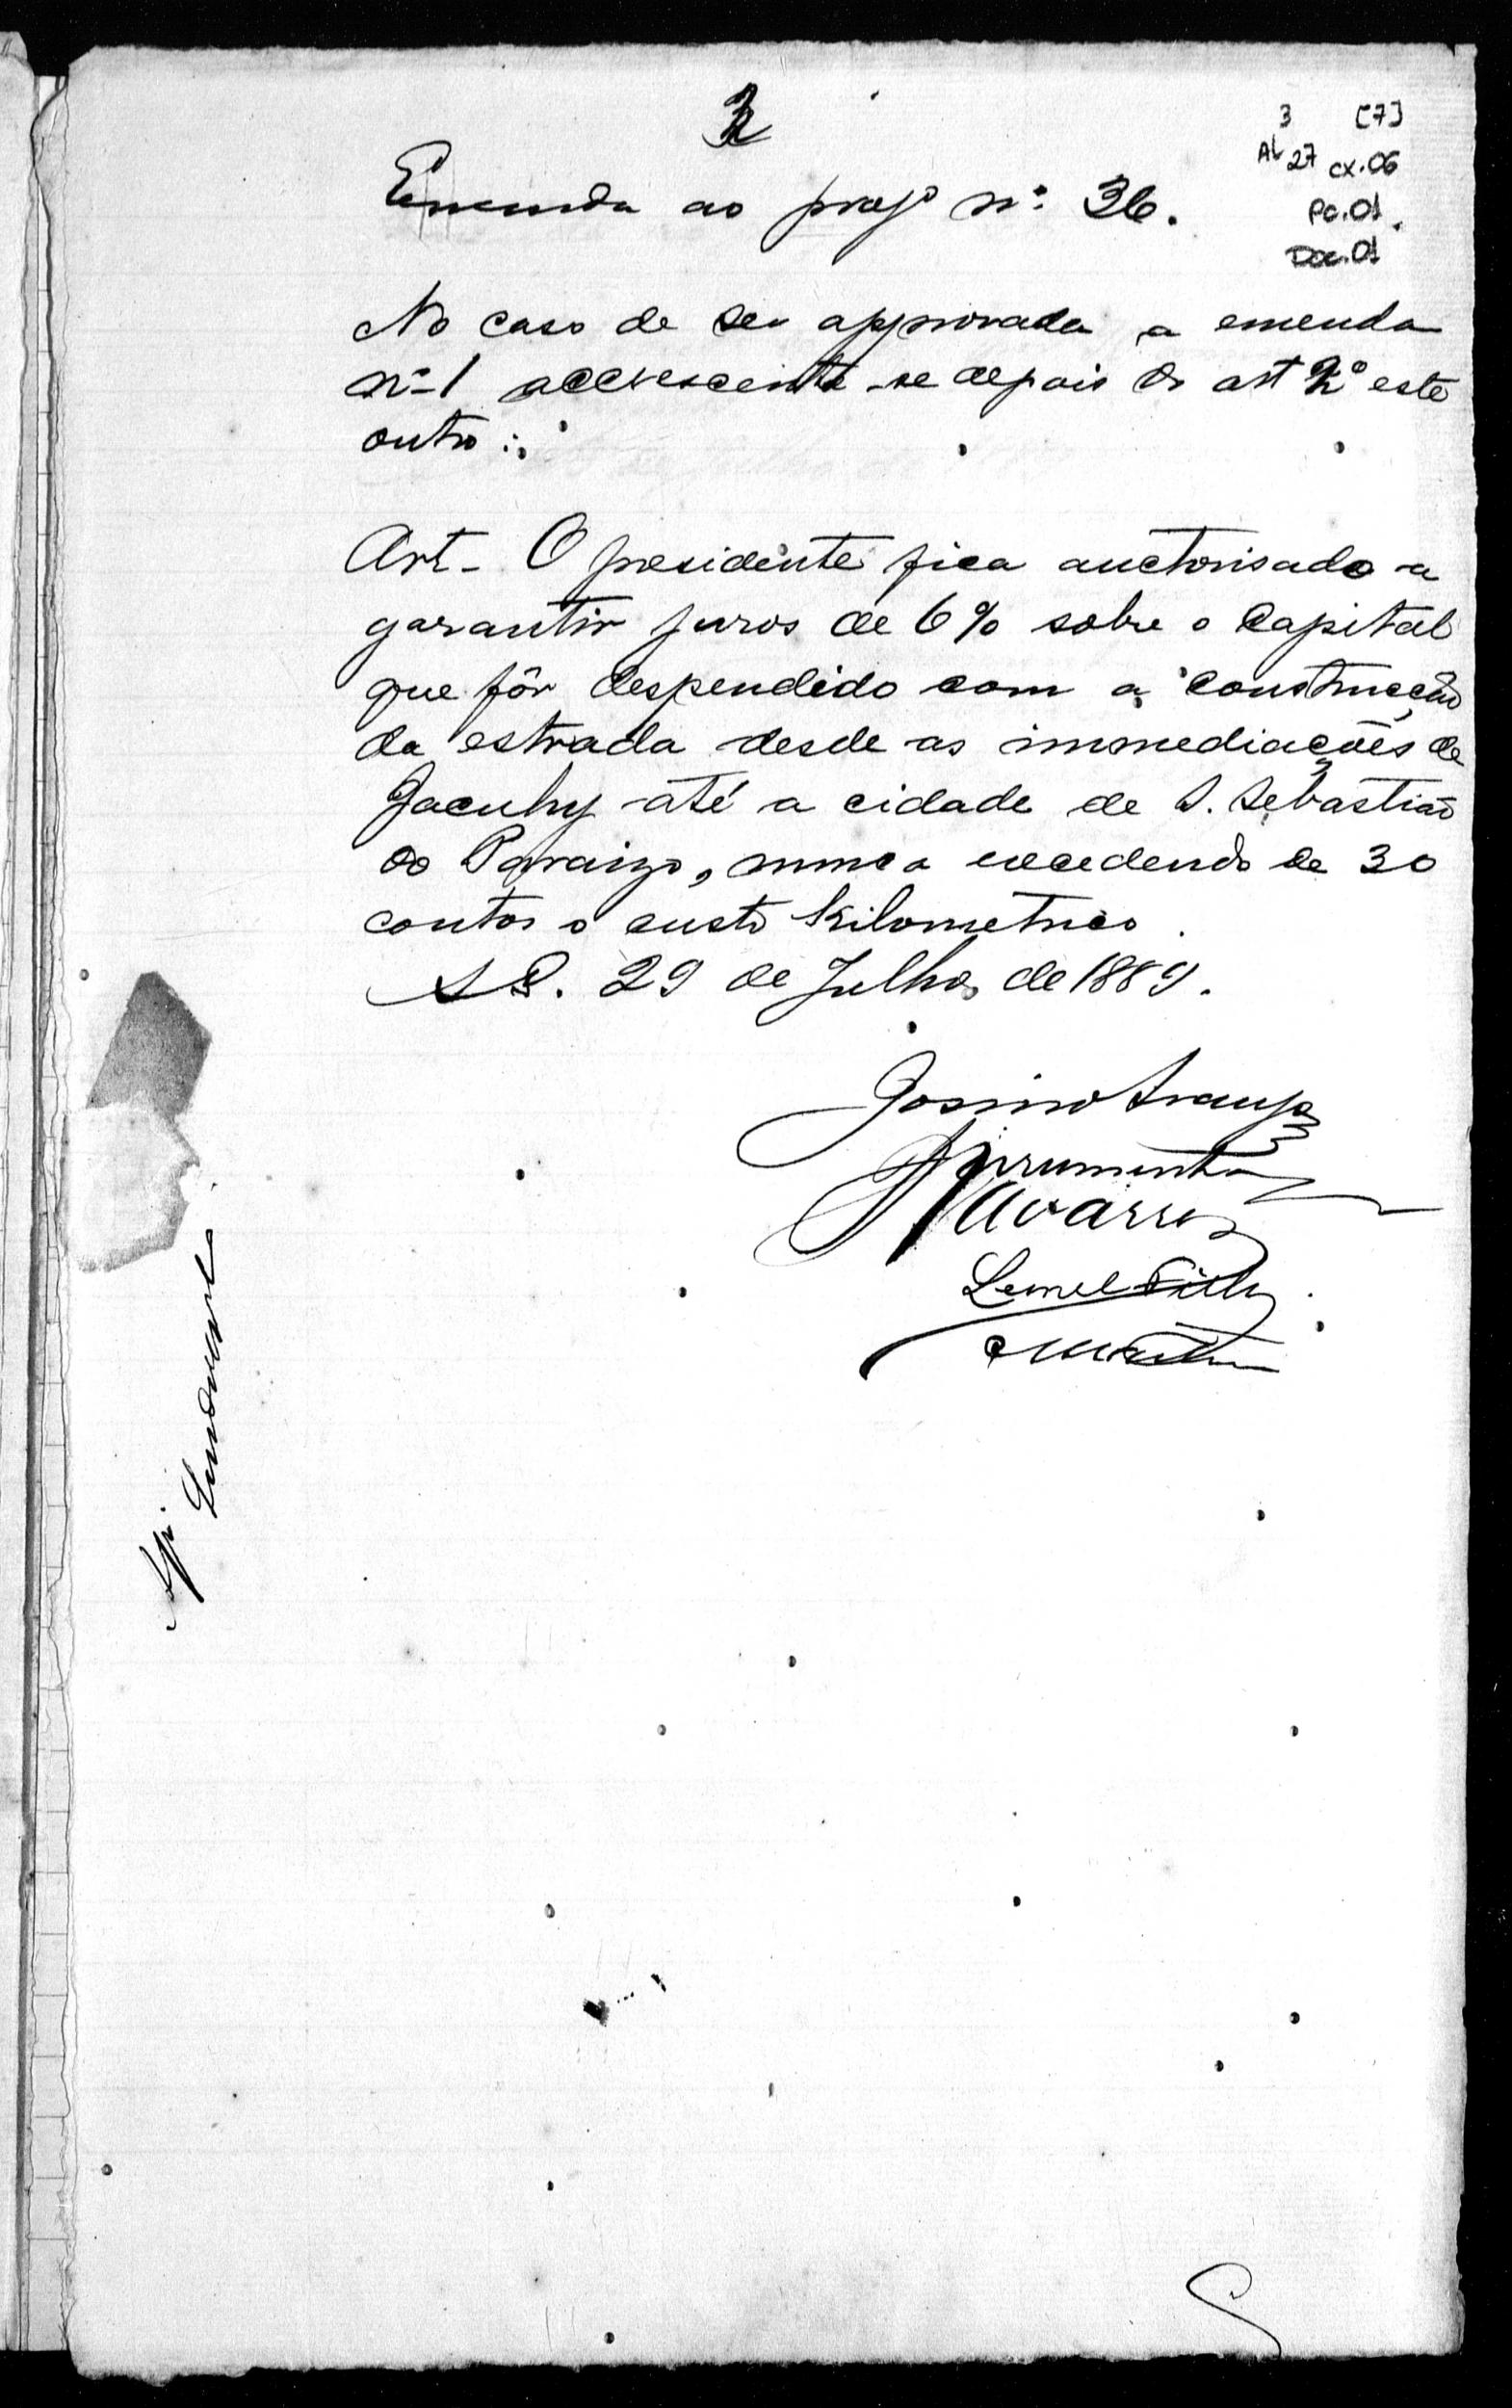 3
3 [7]
AL 27 cx.06
Pc.01.
Doc.01
Emenda ao projo nº 36.
No caso de ser approvada a emenda
nº 1 accrescente-se depois do art 2º este
outro:
Art- O presidente fica auctorisado a
garantir juros de 6% sobre o Capital
que fôr despendido com a construcção
da estrada desde as immediações de
Jacuhy até a cidade de S. Sebastião
do Paraizo, nunca excedendo de 30
contos o custo Kilometrico.
S S. 29 de Julho de 1889.
Josino Araujo
Armenta
Navarro
Lemel Filho